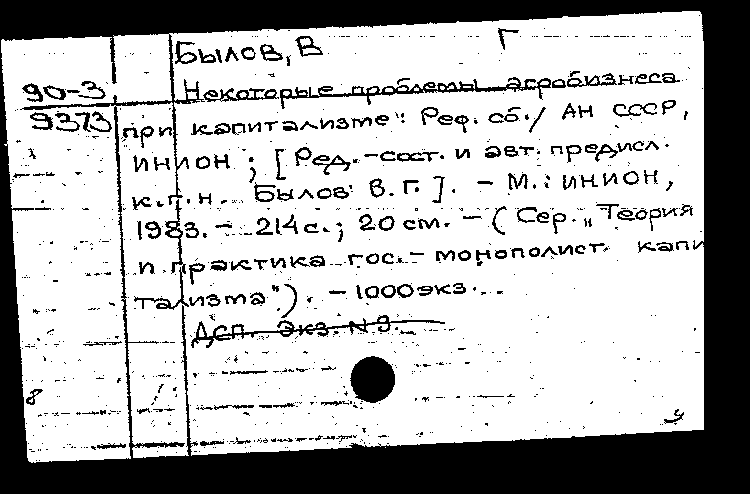 Былов, В Г
90-3 Некоторые проблемы агробизнеса
9373 при капитализме: Реф. сб. / АН СССР,
ИНИОН ; [Ред.-сост. и авт. предисл.
к.г.н. Былов В.Г.]. - М.: ИНИОН,
1983. - 214 с.; 20 см. - (Сер. „Теория
и практика гос.- монополист. капи
тализма"). - 1000 экз.
ДСП. Экз. N 9.
8